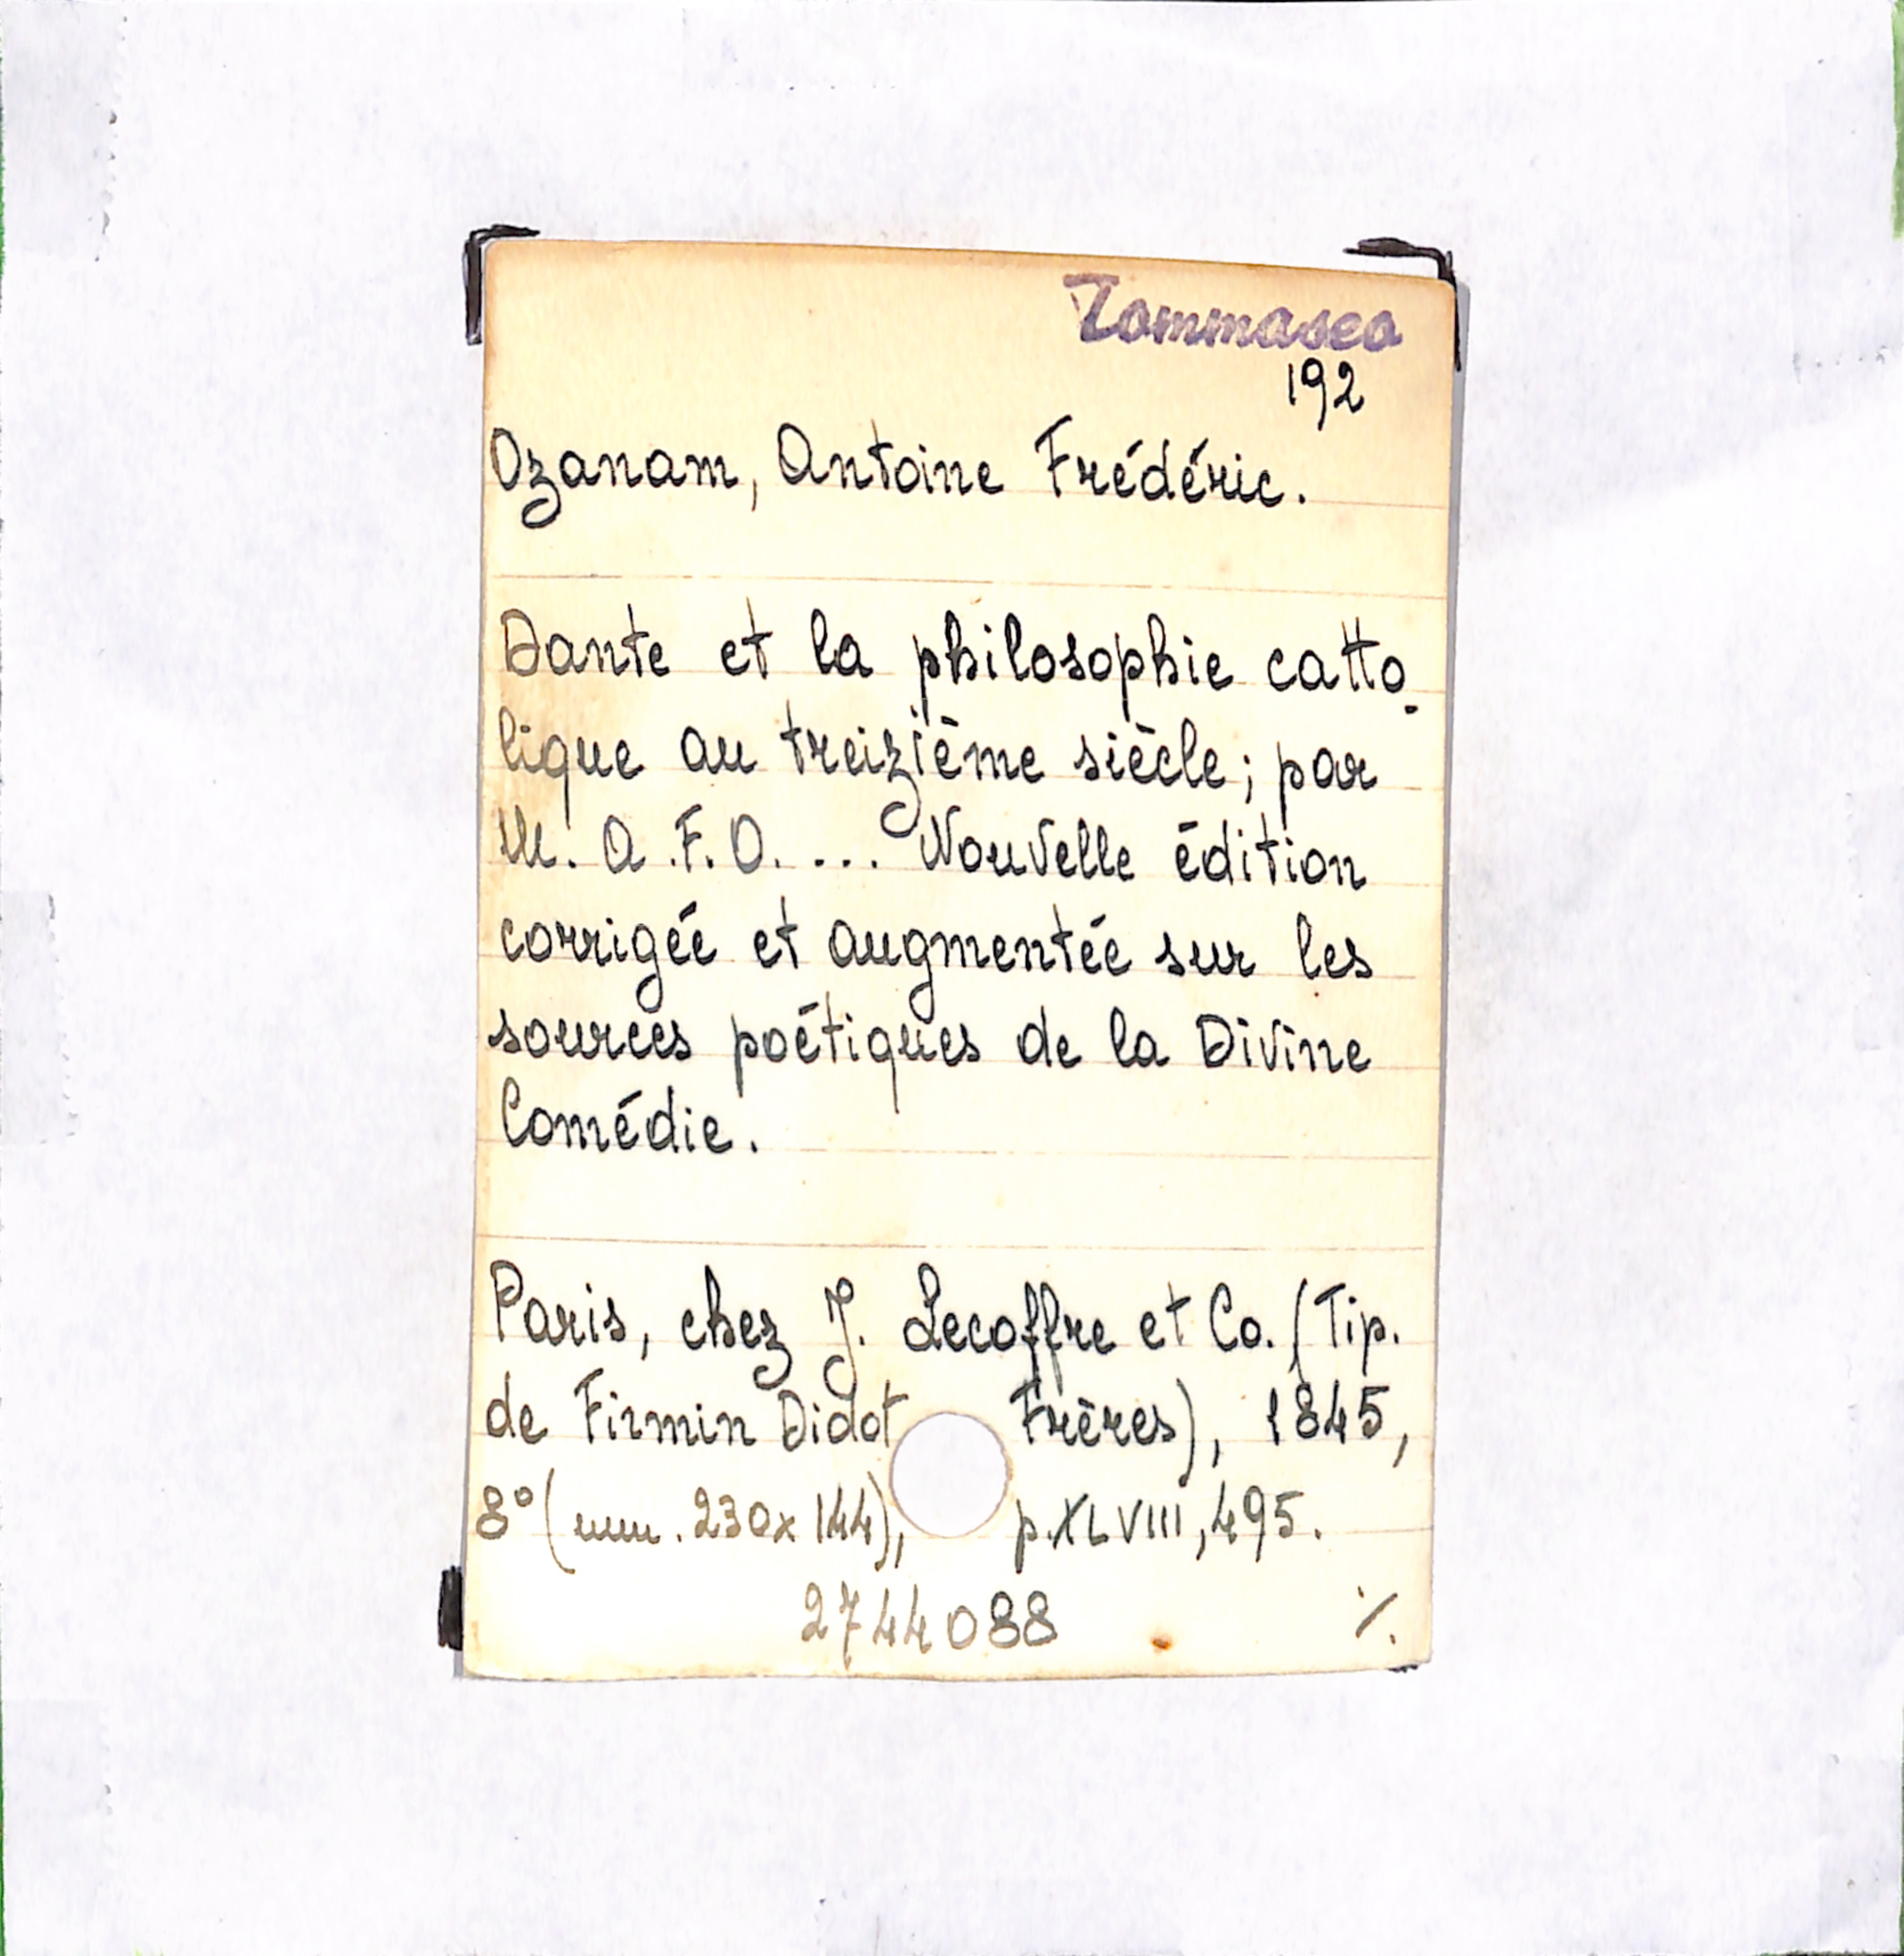 Tommaseo
192
Ozanam, Antoine Frédéric.
Dante et la philosophie catto-
lique au treizième siècle; par
M. A.F.O. ... Nouvelle édition
corrigée et augmentée sur les
sources poétiques de la Divine
Comédie.
Paris, chez J. Lecoffre et Co. (Tip.
de Firmin Didot Frères), 1845,
8° (mm. 230x144), p. XLVIII, 495.
2744088 ./.